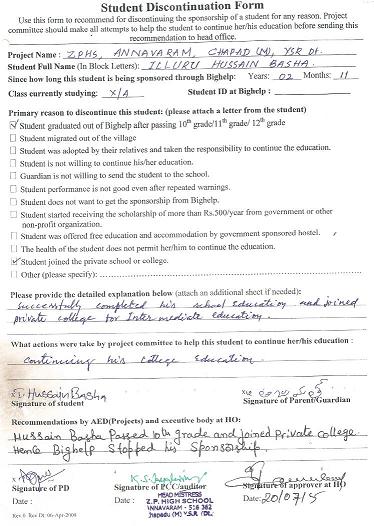 Student Discontinuation Form
Use this form to recommend for discontinuing the sponsorship of a student for any reason. Project
committee should make all attempts to help the student to continue her/his education before sending this
recommendation to head office.
Project Name : ZPHS, ANNAVARAM, CHAPAD (M), YSR Dt.
Student Full Name (In Block Letters): ILLURU HUSSAIN BASHA.
Since how long this student is being sponsored through Bighelp: Years: 02 Months: 11
Class currently studying: X/A Student ID at Bighelp :
Primary reason to discontinue this student: (please attach a letter from the student)
Student graduated out of Bighelp after passing 10th grade/11th grade/ 12th grade
Student migrated out of the village
Student was adopted by their relatives and taken the responsibility to continue the education.
Student is not willing to continue his/her education.
Guardian is not willing to send the student to the school.
Student performance is not good even after repeated warnings.
Student does not want to get the sponsorship from Bighelp.
Student started receiving the scholarship of more than Rs.500/year from government or other
non-profit organization.
Student was offered free education and accommodation by government sponsored hostel.
The health of the student does not permit her/him to continue the education.
Student joined the private school or college.
Other (please specify):
Please provide the detailed explanation below (attach an additional sheet if needed):
Successfully completed his school education and joined
private college for Inter mediate education.
What actions were take by project committee to help this student to continue her/his education :
Continuing his college education.
I. Hussain Basha
Signature of student Signature of Parent/Guardian
Recommendations by AED(Projects) and executive body at HO:
Hussain Basha Passed 10th grade and joined Private College
Hence Bighelp Stopped his Sponsorship.
Signature of PD Signature of PCC/auditor Signature of approver at HO
Date : Date : Date: 20/07/15
HEAD MISTRESS
Z.P. HIGH SCHOOL
ANNAVARAM - 516 362
Chapadu (M) Y.S.R (Dt.)
Rev.0 Rev Dt: 06-Apr-2008